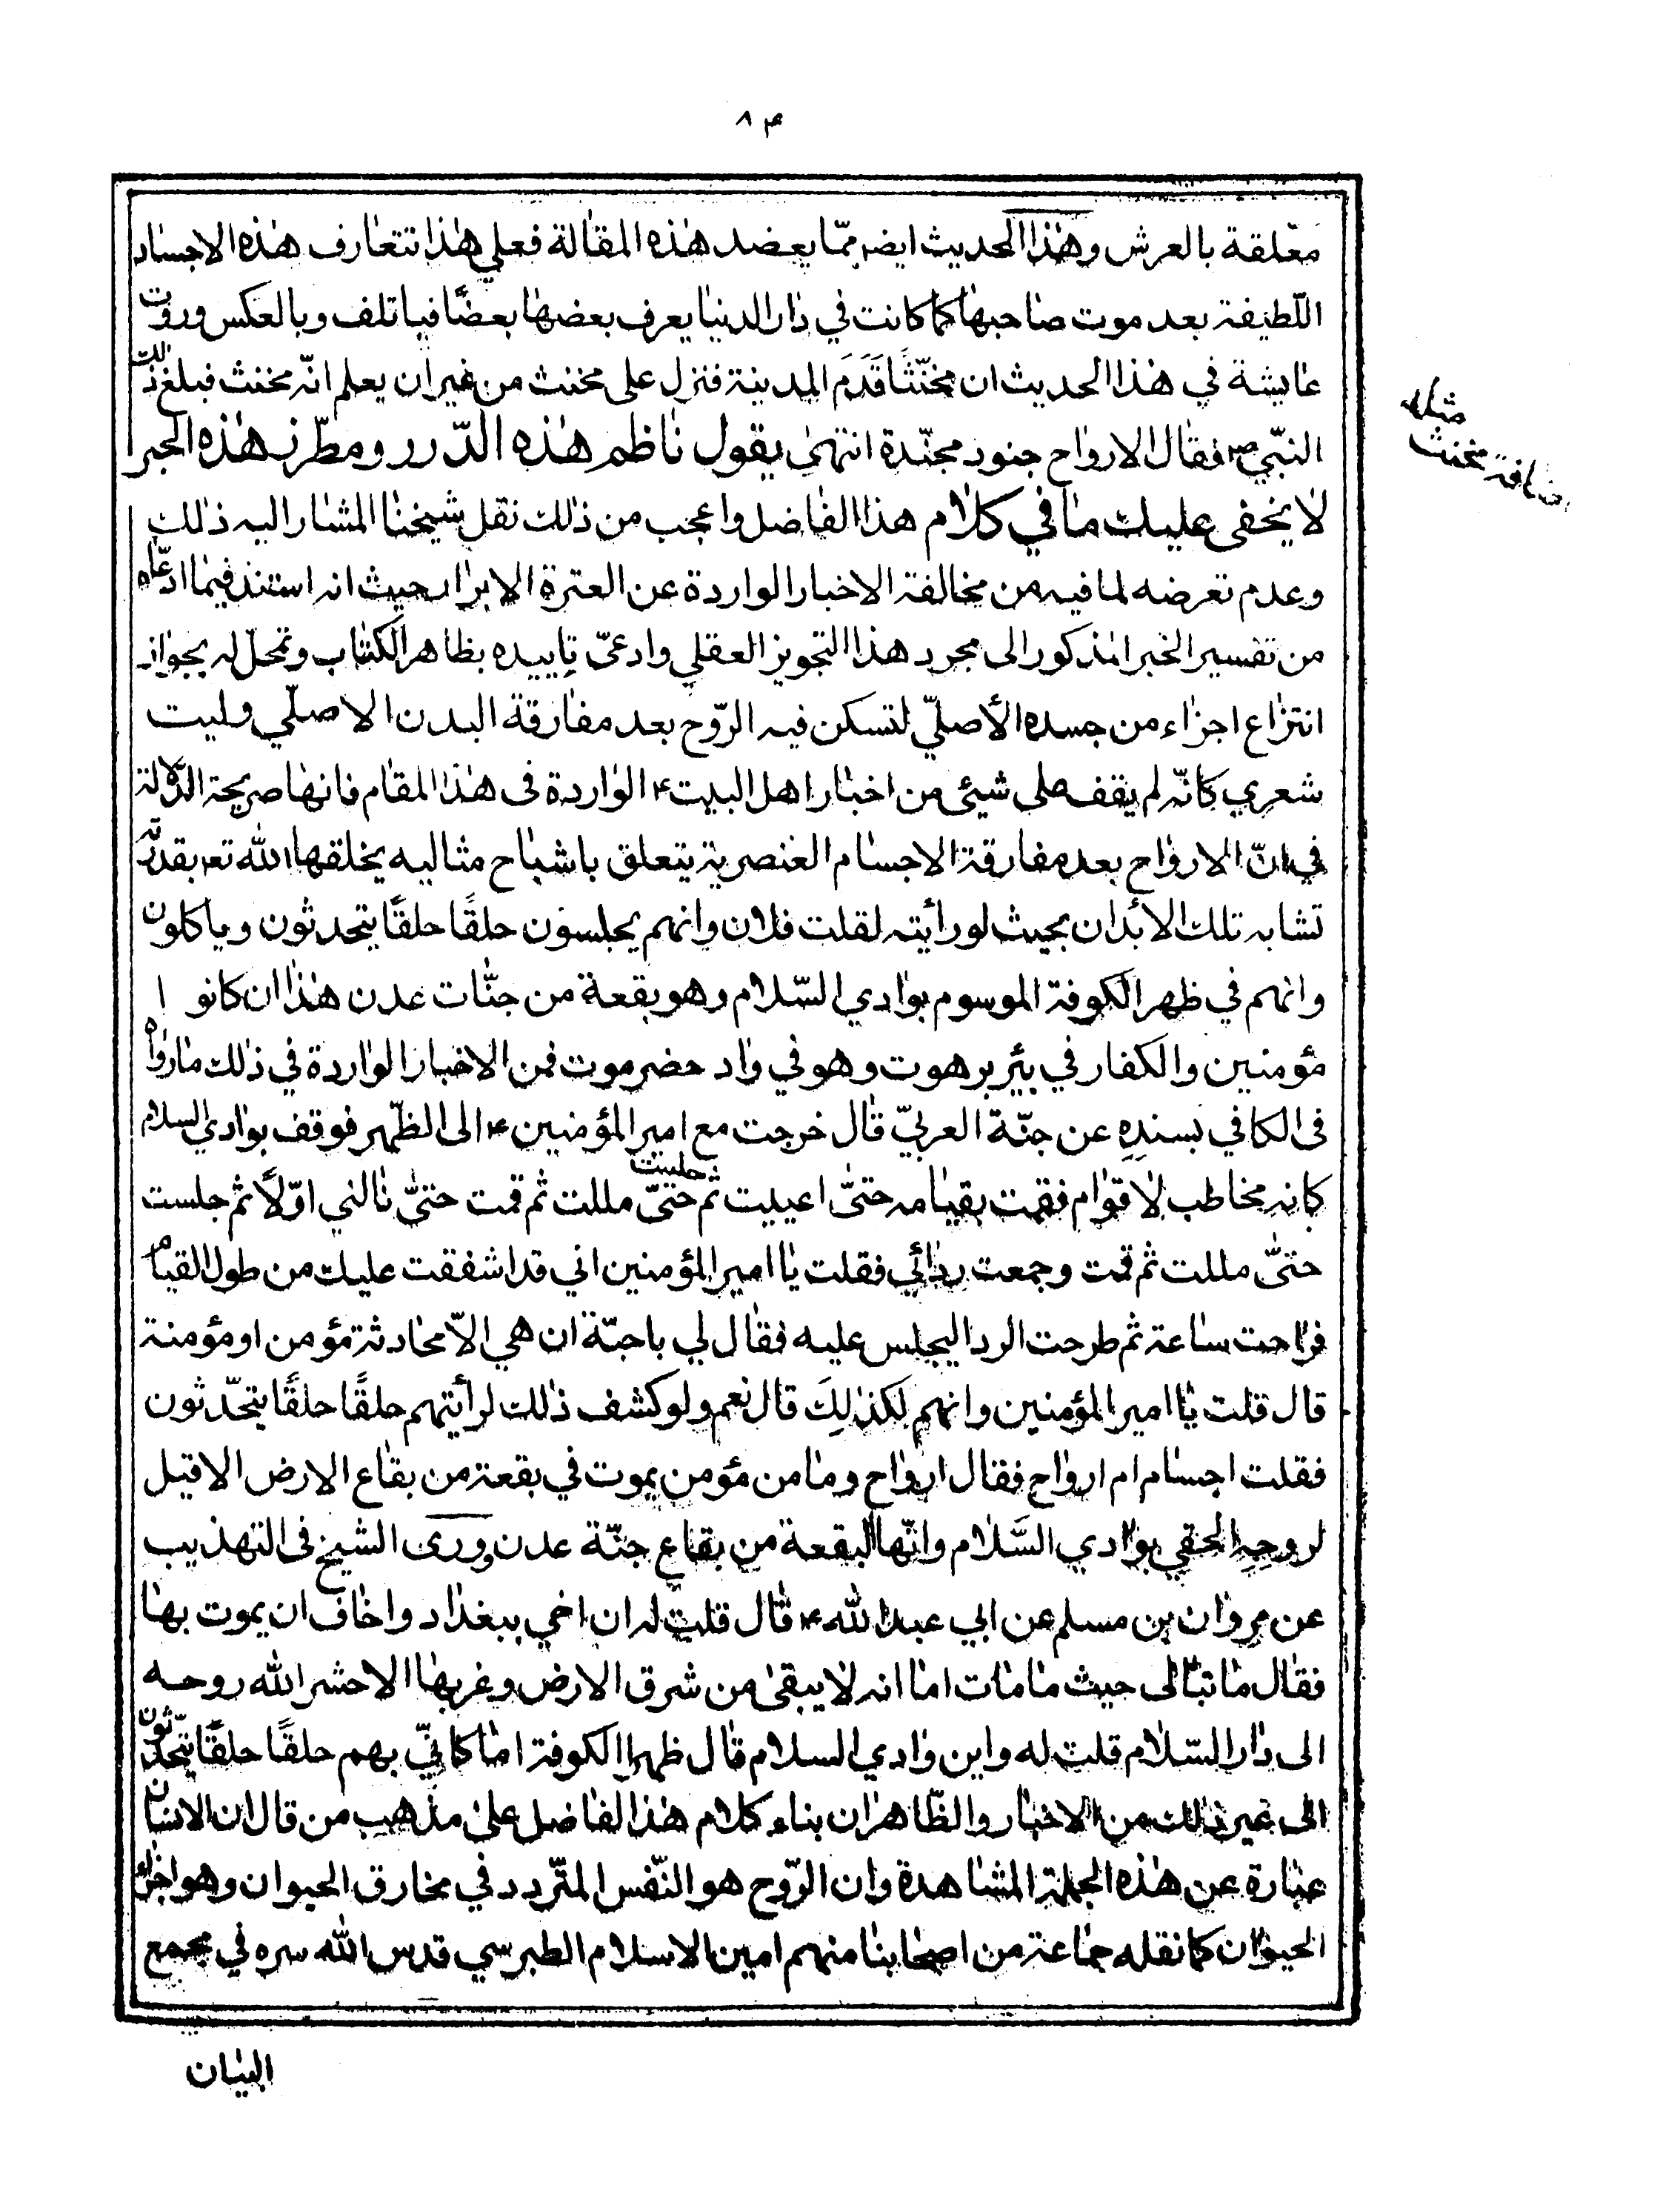 ٨٤
معلقة بالعرش وهذا الحديث ايضر ممّا يعضد هذه المقالة فعلي هذا تتعارف هذه الاجساد
اللّطيفة بعد موت صاحبها كما كانت في دار الدنيا يعرف بعضها بعضًا فياتلف وبالعكس وروت
عايشة في هذا الحديث ان مخنّثًا قَدَمَ المدينة فنزل على مخنث من غير ان يعلم انّه مخنث فبلغ ذلك
النبّي ص فقال الارواح جنود مجنّدة انتهىٰ يقول ناظم هذه الدّرر ومطرّز هذه الحبر
لا يخفى عليك ما في كلام هذا الفاضل واعجب من ذلك نقل شيخنا المشار اليه ذلك
وعدم تعرضه لما فيه من مخالفة الاخبار الواردة عن العترة الابرار حيث انه استند فيما ادّعاه
من تفسير الخبر المذكور الى مجرد هذا التجويز العقلي وادعىّ تاييده بظاهر الكتاب وتمحّل له بجواز
انتزاع اجزاء من جسده الأصليّ لتسكن فيه الرّوح بعد مفارقة البدن الاصلّي وليت
شعري كانّه لم يقف على شيئ من اخبار اهل البيت ع الواردة فى هذا المقام فانها صريحة الدّلالة
في انّ الارواح بعد مفارقة الاجسام العنصرية يتعلق باشباح مثاليه يخلقها الله تع بقدرته
تشابه تلك الأبدان بحيث لو رأيته لقلت فلان وانهم يجلسون حلقًا حلقًا يتحدثون وياكلون
وانهم في ظهر الكوفة الموسوم بوادي السّلام وهو بقعة من جنّات عدن هذا ان كانوا
مؤمنين والكفار في بئير برهوت وهو في واد حضرموت فمن الاخبار الواردة في ذلك ما رواه
فى الكافي بسندِهِ عن جنّة العربيّ قال خرجت مع امير المؤمنين ع الى الظّهر فوقف بوادي السلام
كانه مخاطب لاقوام فقمت بقيامه حتىّ اعييت ثم جلست حتىّ مللت ثم قمت حتىّ نالني اوّلًا ثم جلست
حتىّ مللت ثم قمت وجمعت ردائي فقلت يا امير المؤمنين اني قد اشفقت عليك من طول القيام
فراحت ساعة ثم طرحت الردا ليجلس عليه فقال لي باحبّة ان هي الاّ محادثة مؤمن او مؤمنة
قال قلت يا امير المؤمنين وانهم لكذلِكَ قال نعم ولو كشف ذلك لرأيتهم حلقًا حلقًا يتحّدثون
فقلت اجسام ام ارواح فقال ارواح وما من مؤمن يموت في بقعة من بقاع الارض الا قيل
لروحِهِ الحقي بوادي السَّلام وانّها لبقعة من بقاع جنّة عدن وروى الشيخ فى التهذيب
عن مروان بن مسلم عن ابي عبد الله ع قال قلت له ان اخي ببغداد واخاف ان يموت بها
فقال ما تبالى حيث ما مات اما انه لا يبقى من شرق الارض وغربها الا حشر الله روحه
الى دار السّلام قلت له واين وادي السلام قال ظهر الكوفة اما كانّي بهم حلقًا حلقًا يتحّدثون
الى غير ذلك من الاخبار والظّاهر ان بناء كلام هذا الفاضل على مذهب من قال ان الانسان
عبارة عن هذه الجملة المشاهدة وان الرّوح هو النّفس المتّردد في مخارق الحيوان وهو اجزاء
الحيوان كما نقله جماعة من اصحابنا منهم امين الاسلام الطبرسي قدس الله سره في مجمع
البيان
مخنث